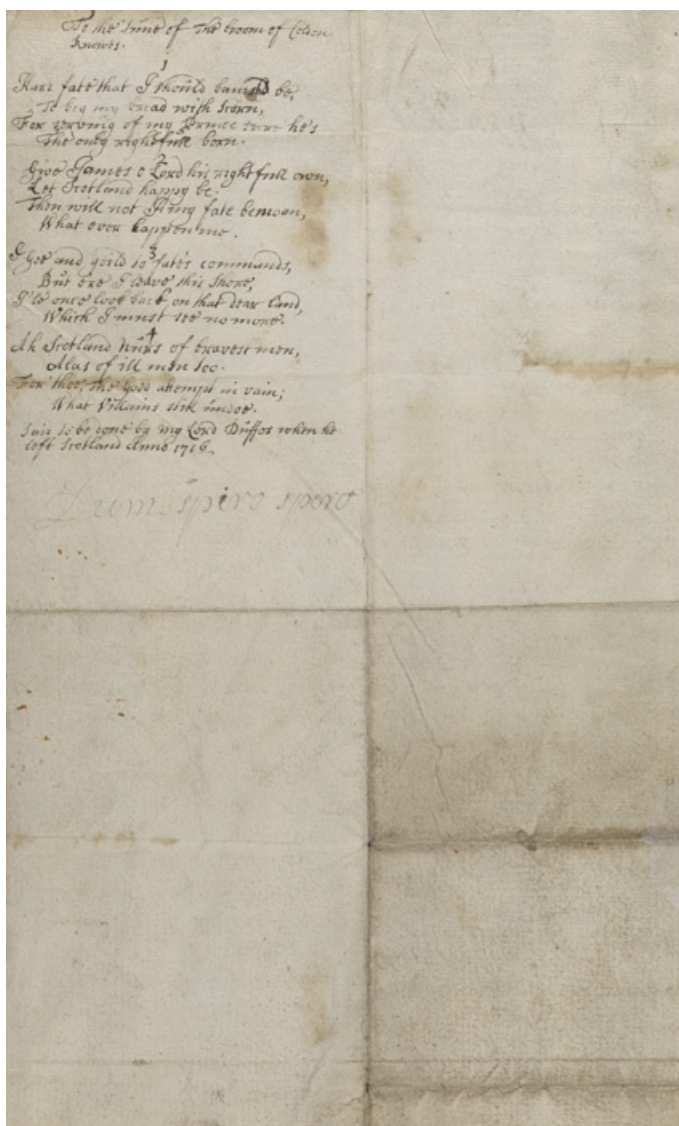 To the tune of The broom of Cohen
knows.
1
Hard fate that I should banisd be,
To beg my bread with scorn,
For serving of my Prince sure he's
The only rightfull born.
2
Give James o Lord his rightfull own,
Let Scotland happy be.
Then will not I my fate bemoan,
What ever happen me.
3
I goe and yeild to fate's commands,
But ere I leave this shore,
I'le once look back on that dear land,
Which I must see no more.
4
Ah Scotland Nurs of bravest men,
Alas of ill men too.
For tho' the Good attempt in vain;
What Villains still undoe.
Said to be done by my Lord Duffos when he
left Scotland Anno 1716.
Dum spiro spero